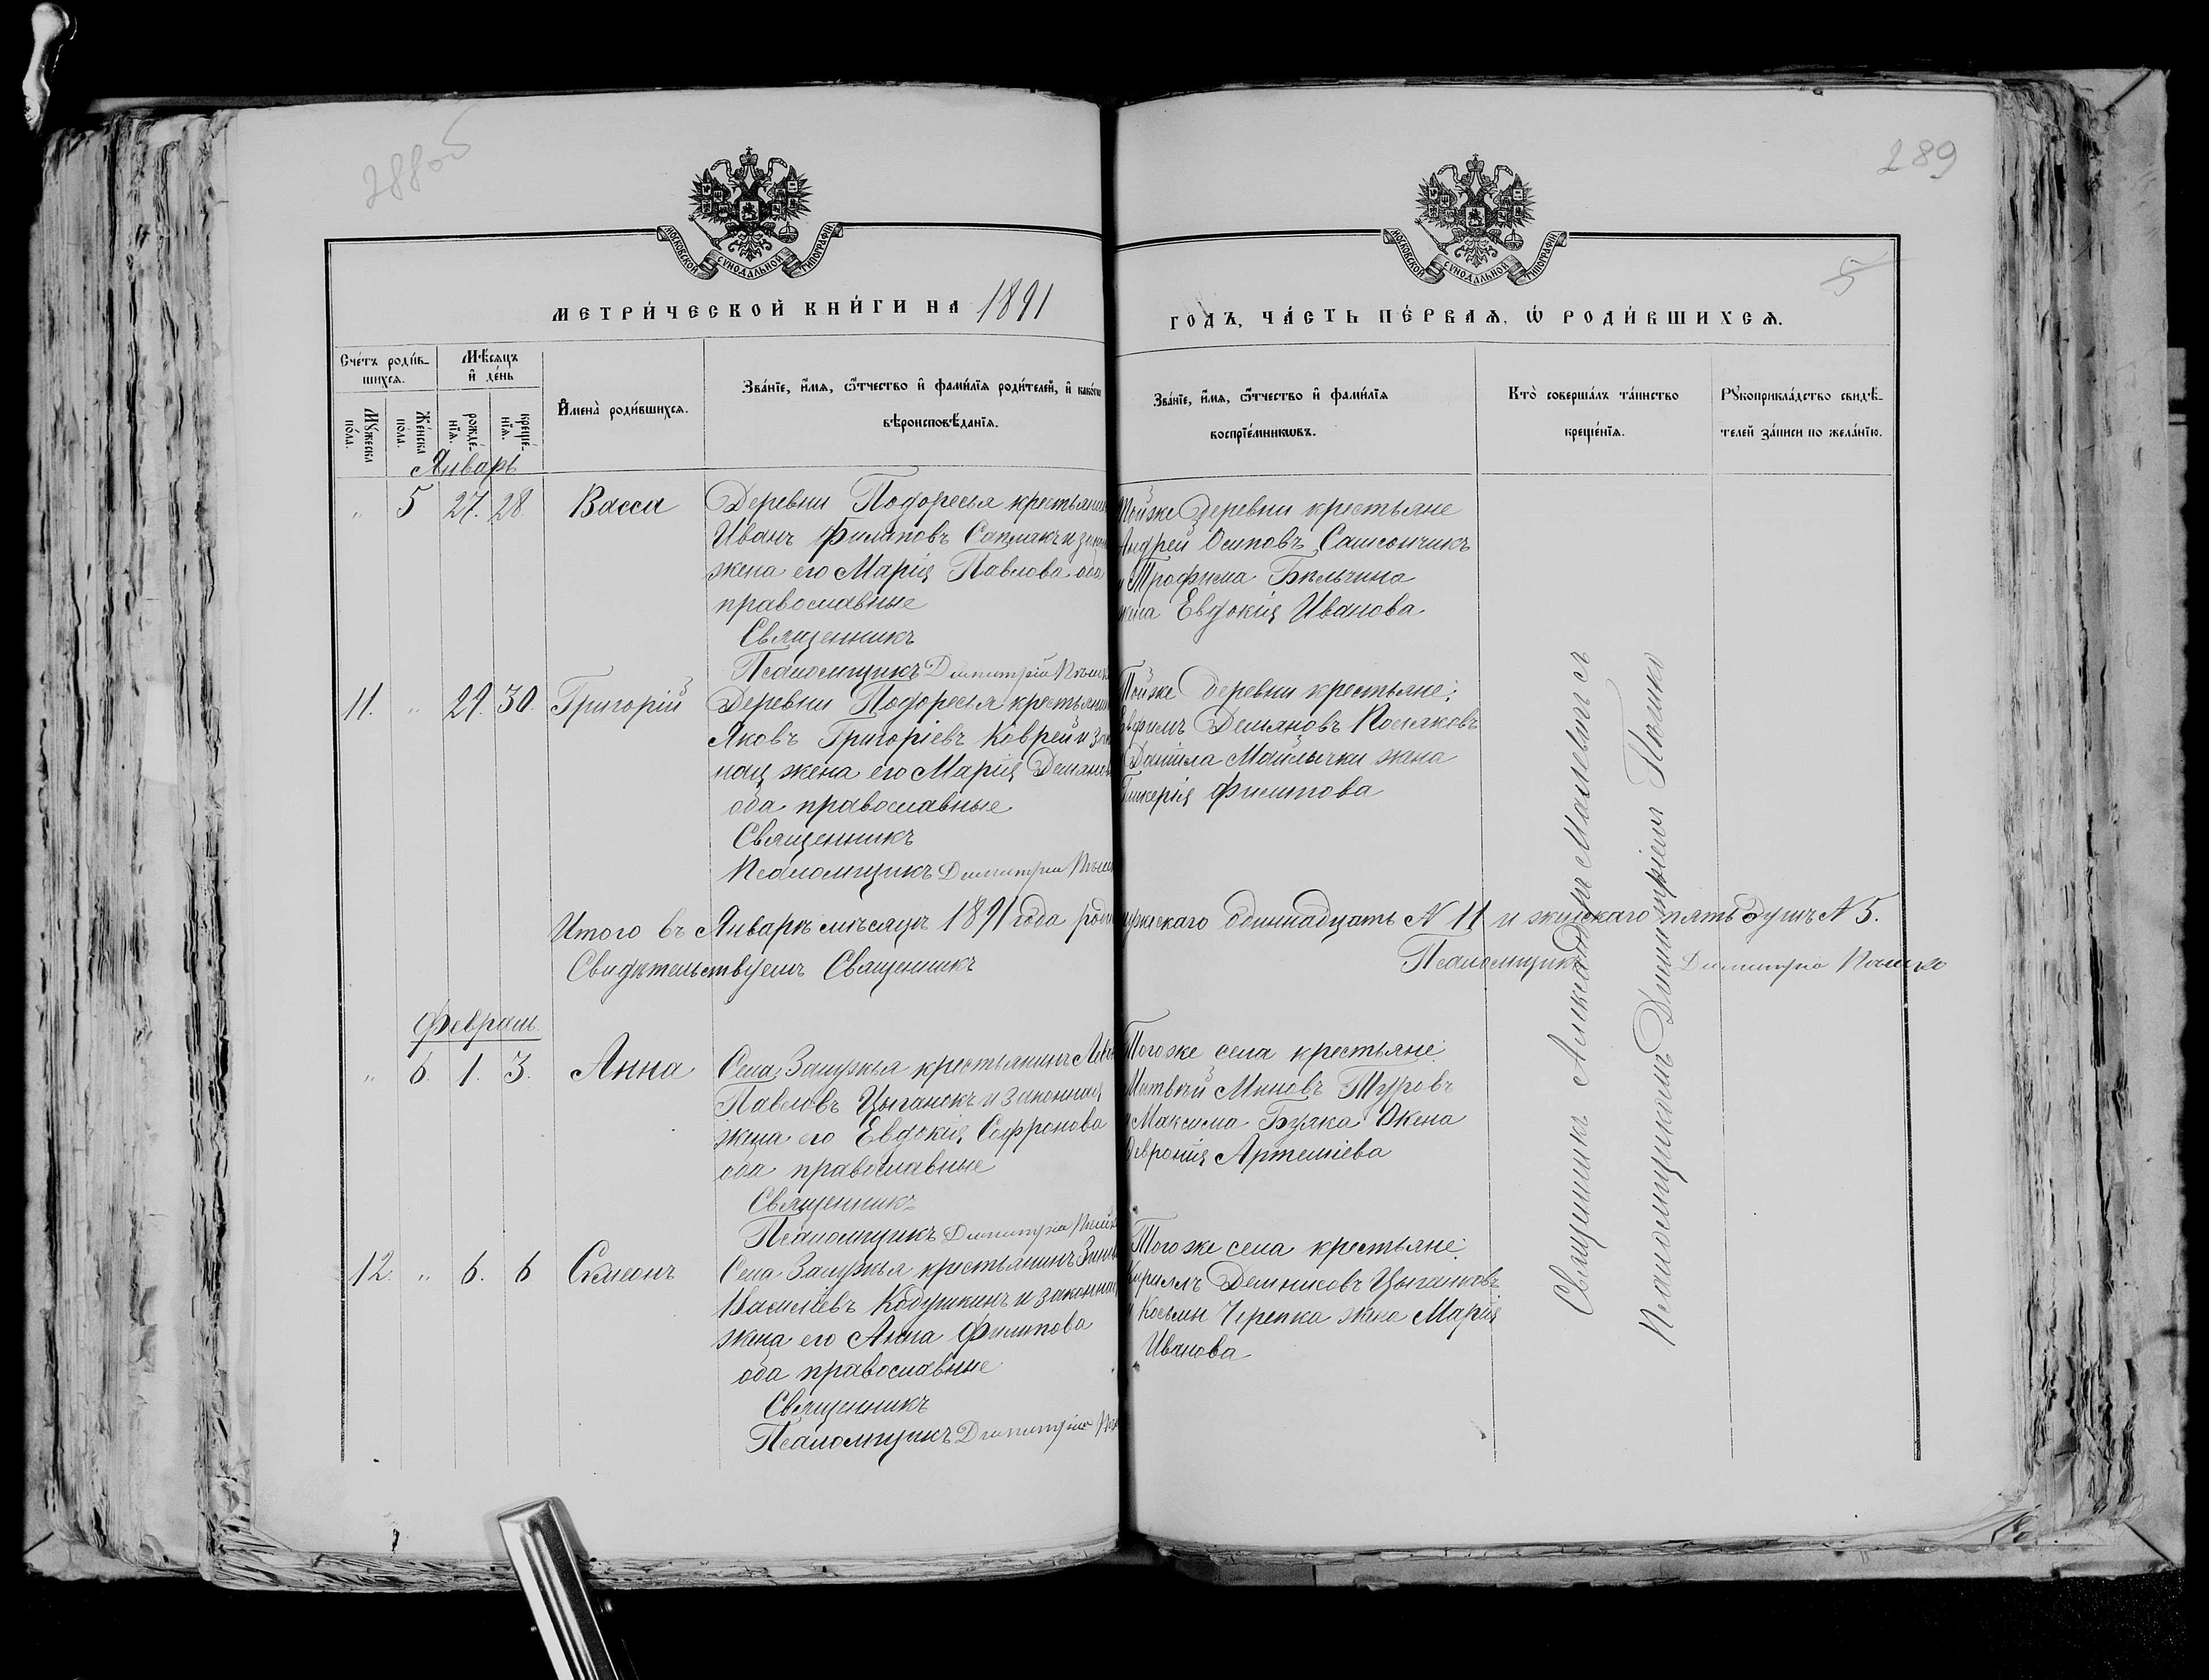 288об
289
5
МОСКОВСКОЙ СѴНОДАЛЬНОЙ ТИПОГРАФІИ
МОСКОВСКОЙ СѴНОДАЛЬНОЙ ТИПОГРАФІИ
МЕТРИ́ЧЕСКОЙ КНИ́ГИ НА 1891
ГОДЪ, ЧА́СТЬ ПЕ́РВАѦ, Ѡ РОДИ́ВШИХСѦ.
Сче́тъ роди́в-
шихсѧ.
Мꙋ́жеска
по́ла.
Же́нска
по́ла.
Мѣ́сѧцъ
и҆ де́нь
рожде́-
нїѧ.
креще́-
нїѧ.
И҆мена̀ роди́вшихсѧ.
Зва́нїе, и҆́мѧ, ѻ҆́тчество и҆ фамилїѧ роди́телей, и҆ како́гѡ
вѣроисповѣ́данїѧ.
Зва́нїе, и҆́мѧ, ѻ҆́тчество и҆ фами́лїѧ
воспрїе́мникѡвъ.
Кто̀ соверша́лъ та́инство
креще́нїѧ.
Рꙋкоприкла́дство свидѣ́-
телей за́писи по жела́нїю.
Январь
" 5 27. 28 Васса
Деревни Подоресья крестьянин
Иванъ Филиповъ
жена его Марія Павлова оба
православные
Священникъ
Псаломщикъ Димитрій
Тойже деревни крестьяне
Андрей Осиповъ Самсончикъ
и Трофима Бѣльчина
жена Евдокія Иванова.
11. " 29. 30. Григорій
Деревни Подоресья крестьянин
Яковъ Григоріевъ Коврей и зак
ная жена его Марія Демянов
оба православные
Священникъ
Псаломщикъ Димитрій
Тойже деревни крестьяне:
Евфимъ Демяновъ
Даніила Майлычки жена
Гликерія Филипова
Итого въ Январѣ мѣсяцѣ 1891 года роди мужескаго одиннадцать № 11 и женскаго пять душъ № 5.
Свидѣтельствуемъ Священникъ Псаломщикъ Димитрій
Февраль.
" 6. 1. 3. Анна
Села Залужья крестьянинъ
Павловъ Цыганокъ и законная
жена его Евдокія Софронова
оба православные
Священникъ
Псаломщикъ Димитрій
Тогоже села крестьяне:
Матвѣй Миновъ Туровъ
и Максима Буяка Жена
Февронія Артеміева
12. " 6. 6 Симеонъ
Села Залужья крестьянинъ
Василіевъ Кодушкинъ и законная
жена его Анна Филипова
оба православные
Священникъ
Псаломщикъ Димитрій
Тогоже села крестьяне:
Кирилъ Денисовъ Цыганковъ
и Косьми Черепка жена Марія
Иванова
Священникъ Александръ Малевичъ съ
Псаломщикомъ Димитріемъ